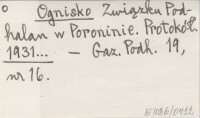 Ognisko Związku Pod-
halan w Poroninie. Protokół.
1931... — Gaz. Podh. 19,
nr 16.